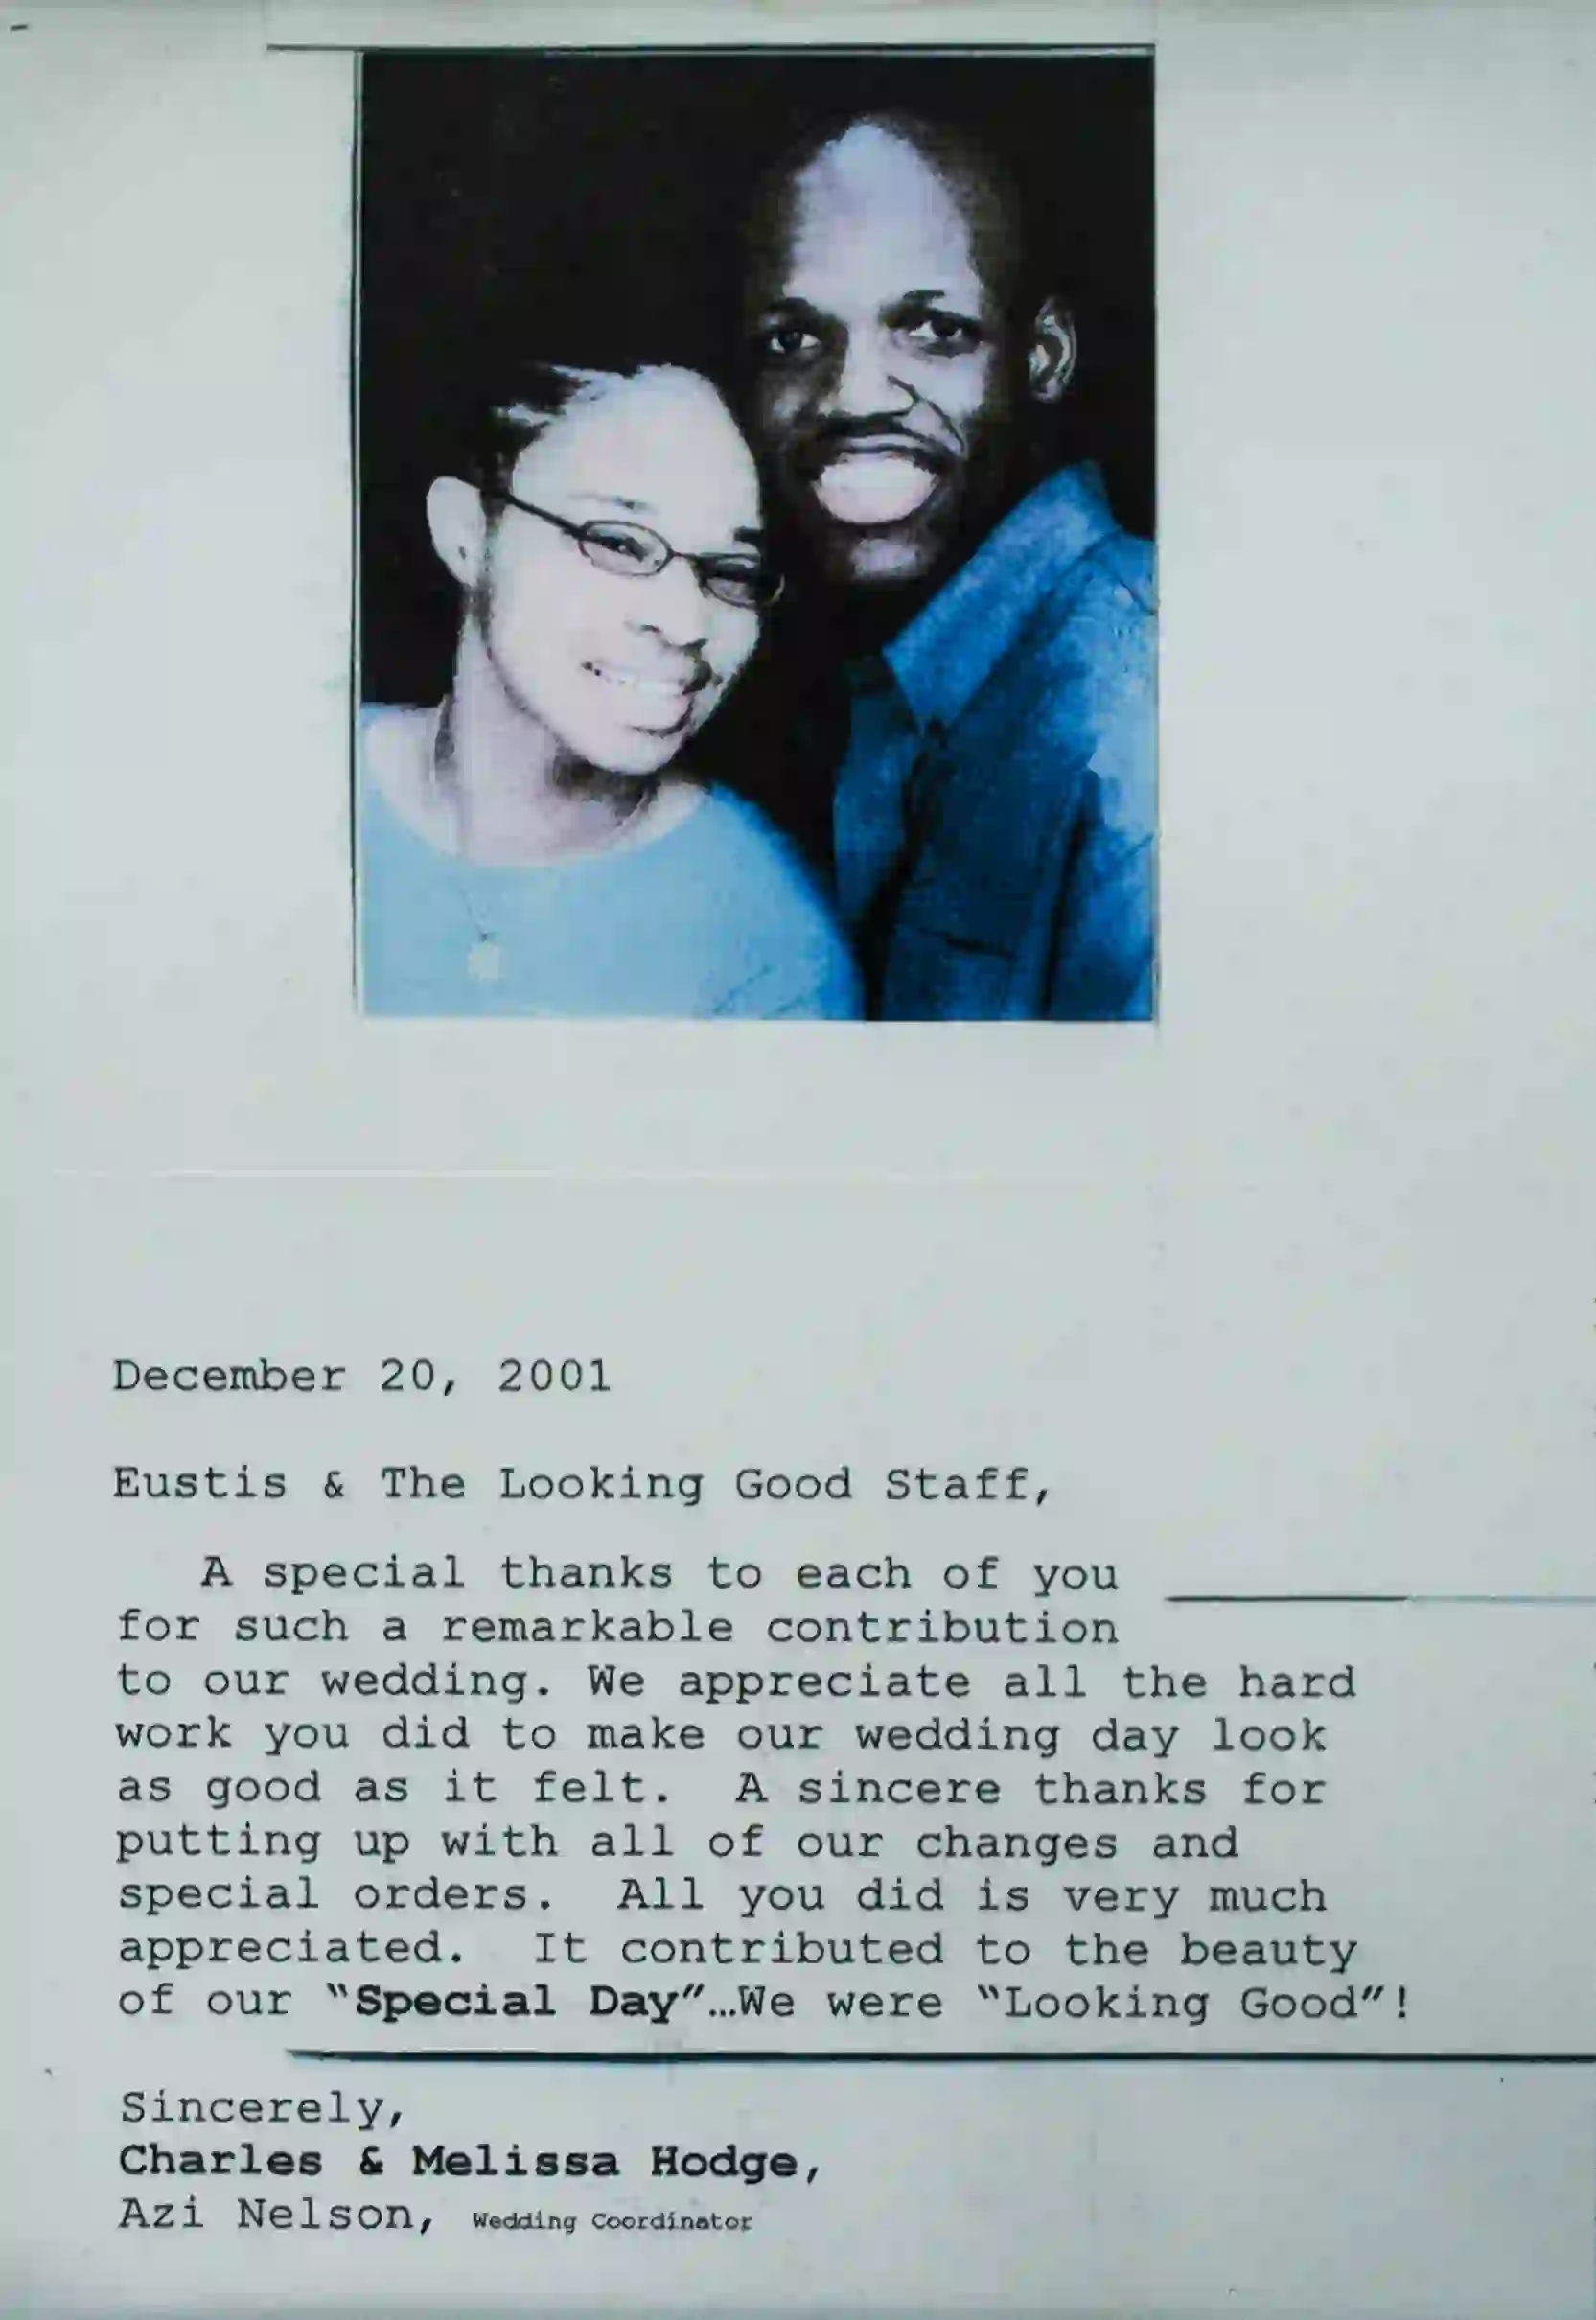 December 20, 2001
Eustis & The Looking Good Staff,
A special thanks to each of you
for such a remarkable contribution
to our wedding. We appreciate all the hard
work you did to make our wedding day look
as good as it felt. A sincere thanks for
putting up with all of our changes and
special orders. All you did is very much
appreciated. It contributed to the beauty
of our "Special Day"…We were "Looking Good"!
Sincerely,
Charles & Melissa Hodge,
Azi Nelson, Wedding Coordinator